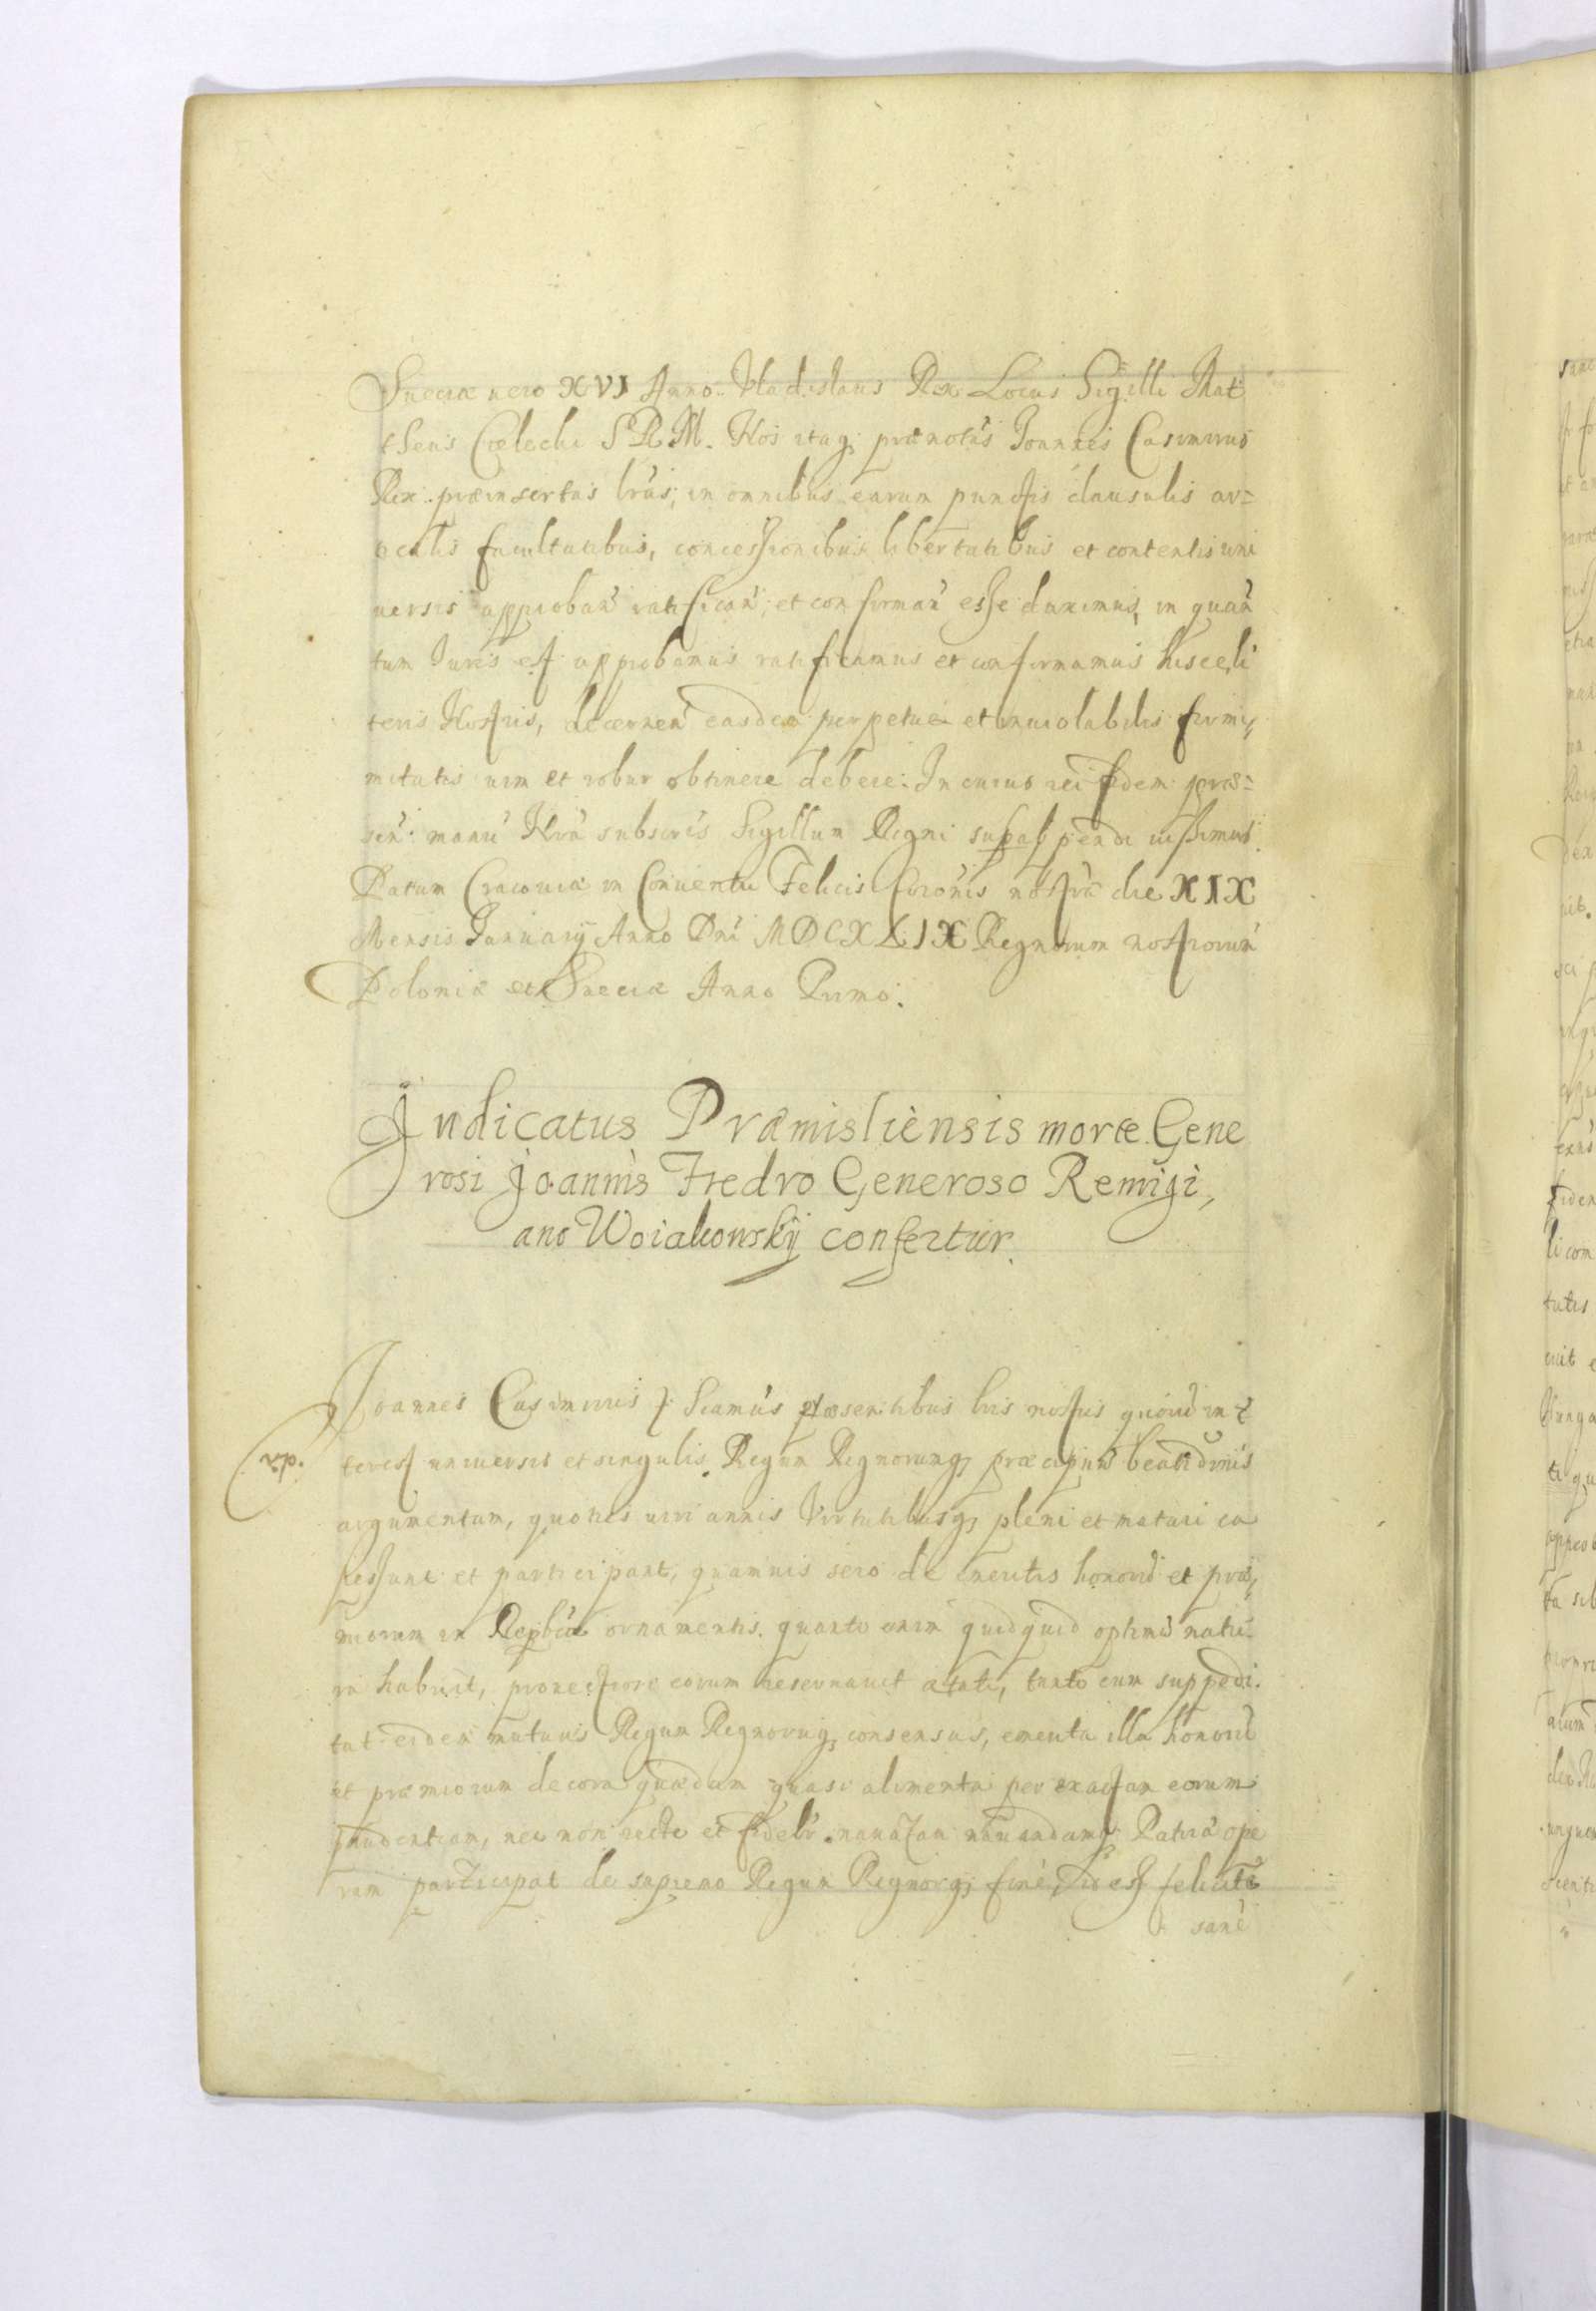 Sueciæ uero XVI Anno. Vladislaus Rex Locus Sigilli Mat
theus Cœlecki S R M. Nos itaq; prænotūs Joannes Casimirus
Rex præinsertas lrās, in omnibus earum punctis clausulis ar=
ticulis facultatibus, concessionibus libertatibus et contentis uni
uersis approban̄ ratifican̄, et confirman̄ esse duximus, in quan
tum Juris est approbamus ratificamus et confirmamus hisce li
teris Nostris, decernen̄ easdem perpetuæ et inuiolabilis firmi,
mitatis uim et robur obtinere debere. In cuius rei fidem præ=
sen̄ manū Nr̄ā subscris Sigillum Regni subappendi iussimus.
Datum Cracouiæ in Conuentu Felicis Coron̄is nostræ die XIX
Mensis January Anno Dnī MDCXLIX Regnorum nostrorum̄
Poloniæ et Sueciæ Anno Primo.
Judicatus Præmisliensis morte Gene
rosi Joannis Fredro Generoso Remigi,
ano Woiakowskÿ confertur.
Joannes Casimirus Significamūs præsentibus lris nostris quorū in
rip.
terest uniuersis et singulis. Regum Regnorumq; præcipuū beatitudinis
argumentum, quoties uiri annis Virtutibusq; pleni et maturi ca
pessunt et participant, quamuis sero de meritis honorū et præ,
miorum in Repbcā ornamentis. quanto enim quidquid optimū natu
ra habuit, prouectiore eorum reseruauit ætati, tanto eum suppedi.
tat eidem mutuus Regum Regnorūq; consensus, emerita illa honorū
et præmiorum decora quædam quasi alimenta per exactam eorum
prudentiam, nec non recte et fidelr nauatam nauandamq; Patriæ ope
ram participat de supremo Regum Regnorq; fine, id est felicitē
sane